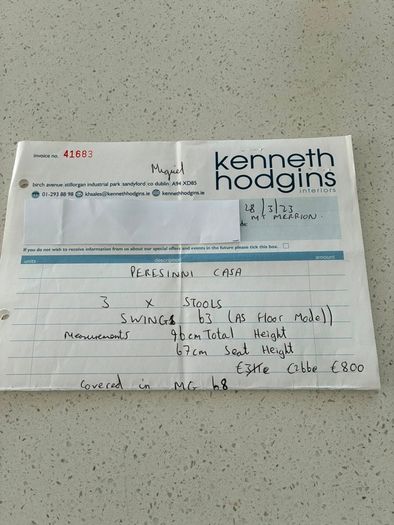 invoice no. 41683
Miguel
kenneth
hodgins
interiors
birch avenue stillorgan industrial park sandyford co dublin A94 XD85
01-293 88 98 khsales@kennethhodgins.ie kennethhodgins.ie
28/3/23
MT MERRION.
If you do not wish to receive information from us about our special offers and events in the future please tick this box.
units description amount
PERESINNI CASA
3 x STOOLS
SWINGS b3 (AS Floor Model))
Measurements 96cm Total Height
67cm Seat Height
€800
Covered in MG b8